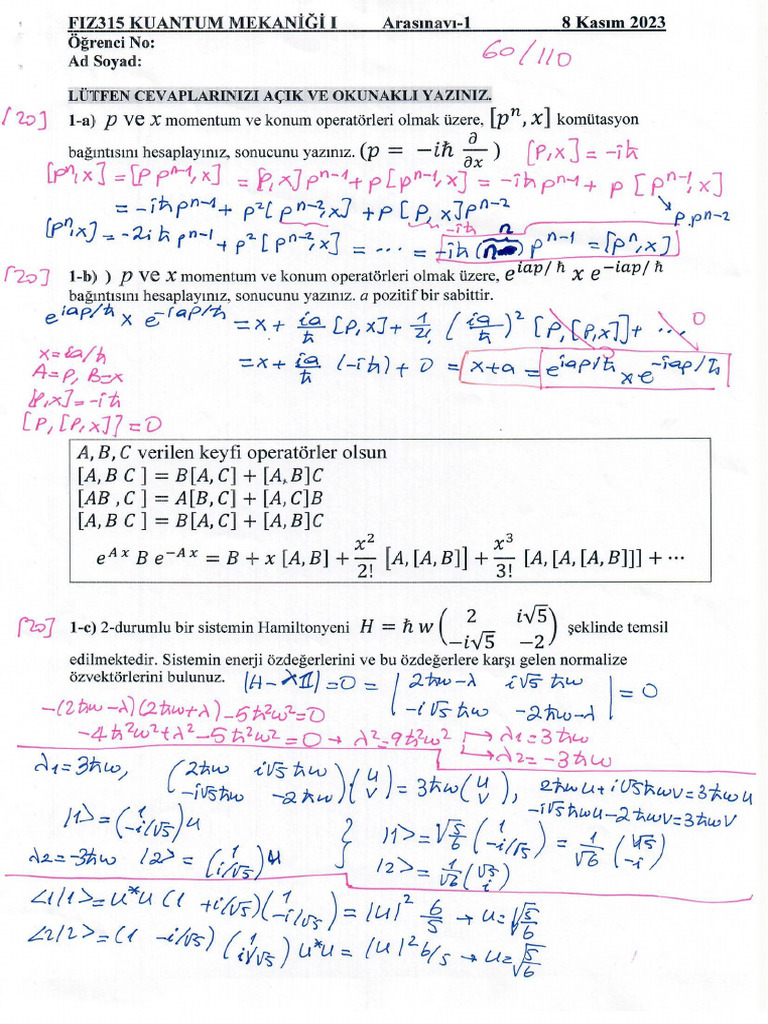 FIZ315 KUANTUM MEKANİĞİ I Arasınavı-1 8 Kasım 2023
Öğrenci No: 60/110
Ad Soyad:
LÜTFEN CEVAPLARINIZI AÇIK VE OKUNAKLI YAZINIZ.
[20] 1-a) p ve x momentum ve konum operatörleri olmak üzere, [pⁿ, x] komütasyon
bağıntısını hesaplayınız, sonucunu yazınız. (p = −iħ ∂/∂x ) [p,x] = −iħ
[pⁿ,x] = [p pⁿ⁻¹, x] = [p,x]pⁿ⁻¹ + p[pⁿ⁻¹,x] = −iħpⁿ⁻¹ + p [pⁿ⁻¹,x]
p.pⁿ⁻²
= −iħpⁿ⁻¹ + p²[pⁿ⁻²,x] + p[p,x]pⁿ⁻²
−iħ n
[pⁿ,x] = −2iħpⁿ⁻¹ + p²[pⁿ⁻²,x] = ··· = −iħ( )pⁿ⁻¹ = [pⁿ,x]
[20] 1-b) ) p ve x momentum ve konum operatörleri olmak üzere, e^{iap/ħ} x e^{−iap/ħ}
bağıntısını hesaplayınız, sonucunu yazınız. a pozitif bir sabittir.
e^{iap/ħ} x e^{−iap/ħ} = x + ia/ħ [p,x] + 1/2! (ia/ħ)² [p,[p,x]] + ··· 0
x = ia/ħ
= x + ia/ħ (−iħ) + 0 = x+a = e^{iap/ħ} x e^{−iap/ħ}
A=p, B=x
[p,x] = −iħ
[p,[p,x]] = 0
A, B, C verilen keyfi operatörler olsun
[A, B C ] = B[A, C] + [A, B]C
[AB , C ] = A[B, C] + [A, C]B
[A, B C ] = B[A, C] + [A, B]C
e^{A x} B e^{−A x} = B + x [A, B] + x²/2! [A, [A, B]] + x³/3! [A, [A, [A, B]]] + ⋯
[20] 1-c) 2-durumlu bir sistemin Hamiltonyeni H = ħ w ( 2 i√5 ; −i√5 −2 ) şeklinde temsil
edilmektedir. Sistemin enerji özdeğerlerini ve bu özdeğerlere karşı gelen normalize
özvektörlerini bulunuz. |H−λ𝟙| = 0 = | 2ħw−λ i√5ħw ; −i√5ħw −2ħw−λ | = 0
−(2ħw−λ)(2ħw+λ) −5ħ²w² = 0
−4ħ²w²+λ²−5ħ²w² = 0 → λ² = 9ħ²w² → λ1 = 3ħw
→ λ2 = −3ħw
λ1 = 3ħw, ( 2ħw i√5ħw ; −i√5ħw −2ħw ) ( u ; v ) = 3ħw ( u ; v ), 2ħwu + i√5ħwv = 3ħwu
−i√5ħwu − 2ħwv = 3ħwv
|1> = ( 1 ; −i/√5 ) u } |1> = √5/6 ( 1 ; −i/√5 ) = 1/√6 ( √5 ; −i )
λ2 = −3ħw |2> = ( 1 ; i/√5 ) u |2> = 1/√6 ( √5 ; i )
<1|1> = u*u (1 +i/√5) ( 1 ; −i/√5 ) = |u|² 6/5 → u = √5/6
<2|2> = (1 −i/√5) ( 1 ; i/√5 ) u*u = |u|² 6/5 → u = √5/6